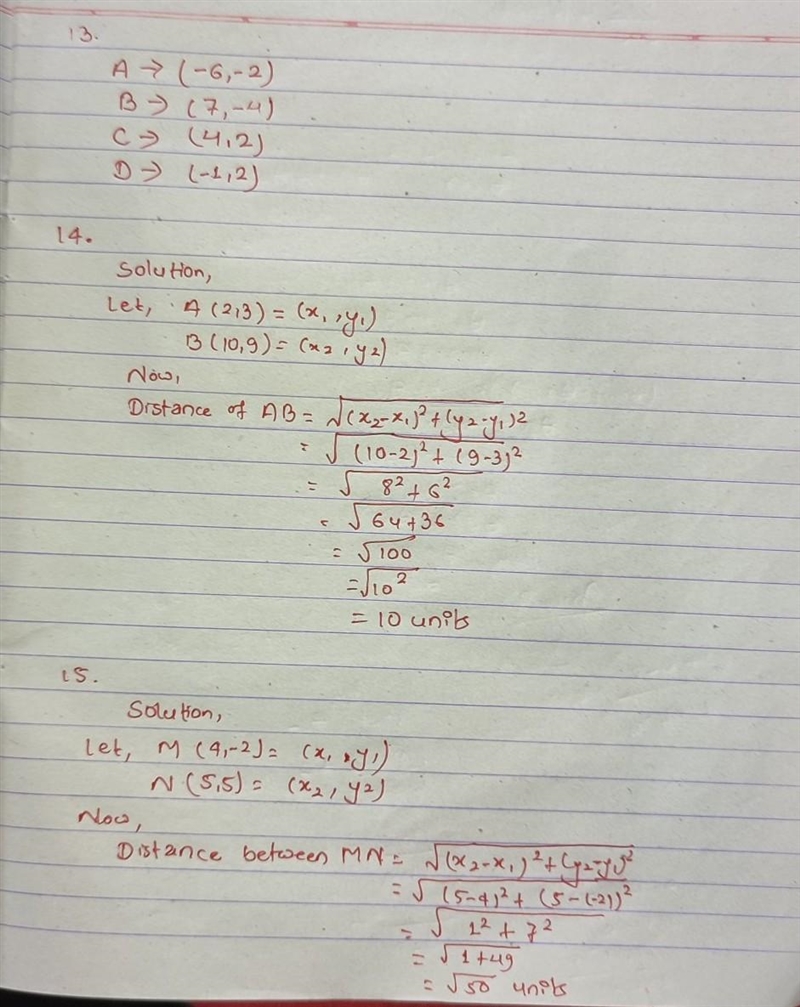 13.
A → (-6,-2)
B → (7,-4)
C → (4,2)
D → (-1,2)
14.
Solution,
Let, A (2,3) = (x₁,y₁)
B (10,9) = (x₂,y₂)
Now,
Distance of AB = √(x₂-x₁)²+(y₂-y₁)²
= √(10-2)²+(9-3)²
= √8²+6²
= √64+36
= √100
= √10²
= 10 units
15.
Solution,
Let, M (4,-2) = (x₁,y₁)
N (5,5) = (x₂,y₂)
Now,
Distance between MN = √(x₂-x₁)²+(y₂-y₁)²
= √(5-4)²+(5-(-2))²
= √1²+7²
= √1+49
= √50 units